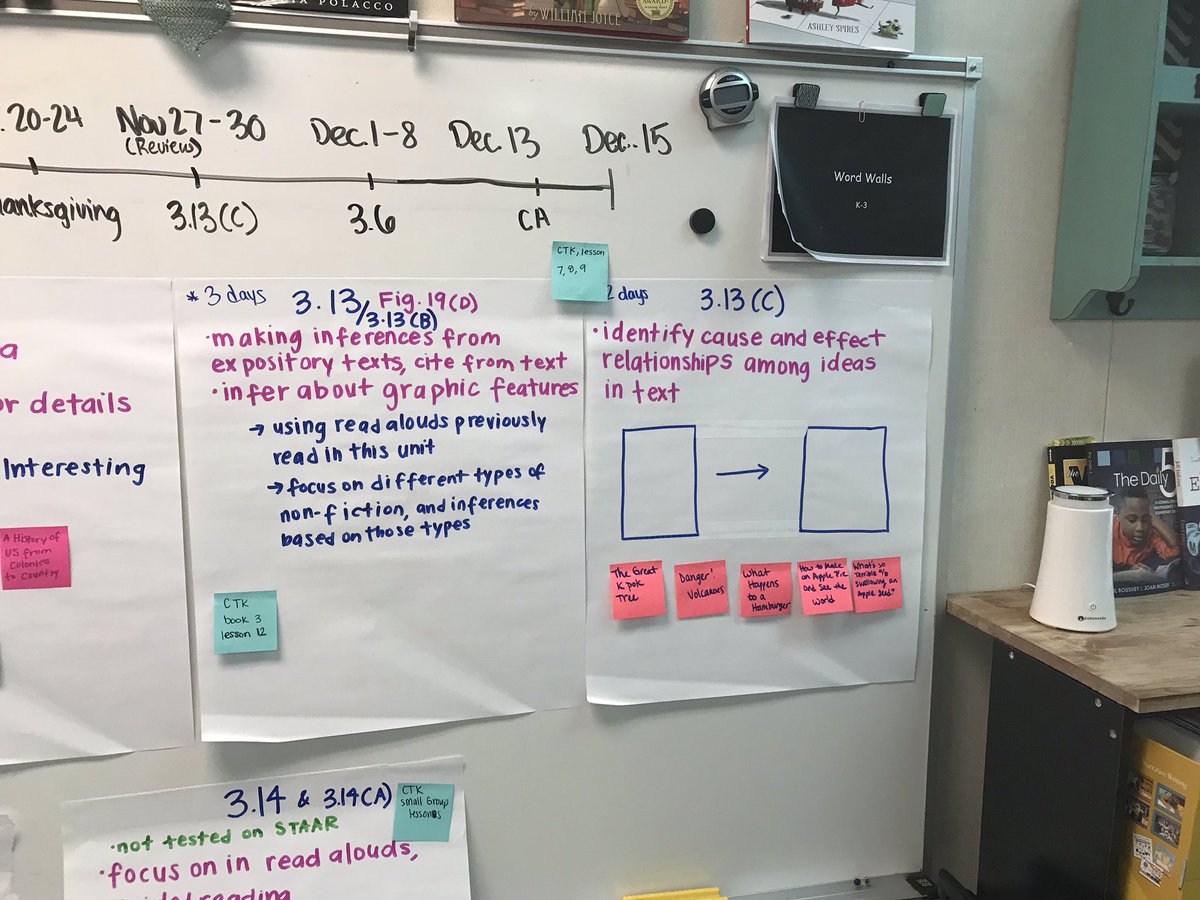 POLACCO
by WILLIAM JOYCE
AWARD
ASHLEY SPIRES
. 20-24
Nov 27-30
(Review)
Dec. 1-8
Dec. 13
Dec.. 15
hanksgiving
3.13(C)
3.6
CA
Word Walls
K-3
CTK, lesson
7, 8, 9
a
or details
Interesting
A History of
US from
Colonies
to Country
* 3 days
3.13/ Fig. 19(D)
3.13(B)
• making inferences from
expository texts, cite from text
• infer about graphic features
→ using read alouds previously
read in this unit
→ focus on different types of
non-fiction, and inferences
based on those types
CTK
book 3
lesson 12
2 days
3.13(C)
• identify cause and effect
relationships among ideas
in text
→
The Great
Kapok
Tree
Danger!
Volcanoes
What
Happens
to a
Hamburger
How to Make
an Apple Pie
and See the
World
What's so
Terrible
Swallowing an
Apple Seed?
3.14 & 3.14(A)
CTK
small Group
lessons
• not tested on STAAR
• focus on in read alouds,
reading
The Daily
5
BOUSHEY & JOAN MOSER
Narrative Writing